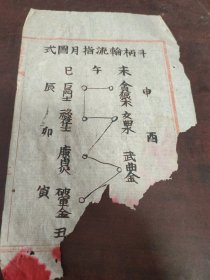 斗柄輪流指月圖式
未
午
巳
申
貪狼木
巨門土
辰
文曲水
祿存土
酉
卯
武曲金
廉貞火
寅
破軍金
丑